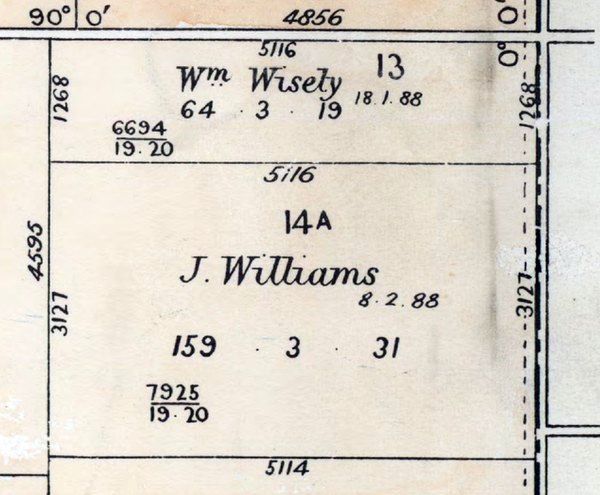 90° 0' 4856 0°
5116
Wm Wisely 13
64 . 3 . 19 18.1.88
1268
1268
0°
6694
19.20
5116
14A
J. Williams
8.2.88
4595
3127
3127
159 . 3 . 31
7925
19.20
5114